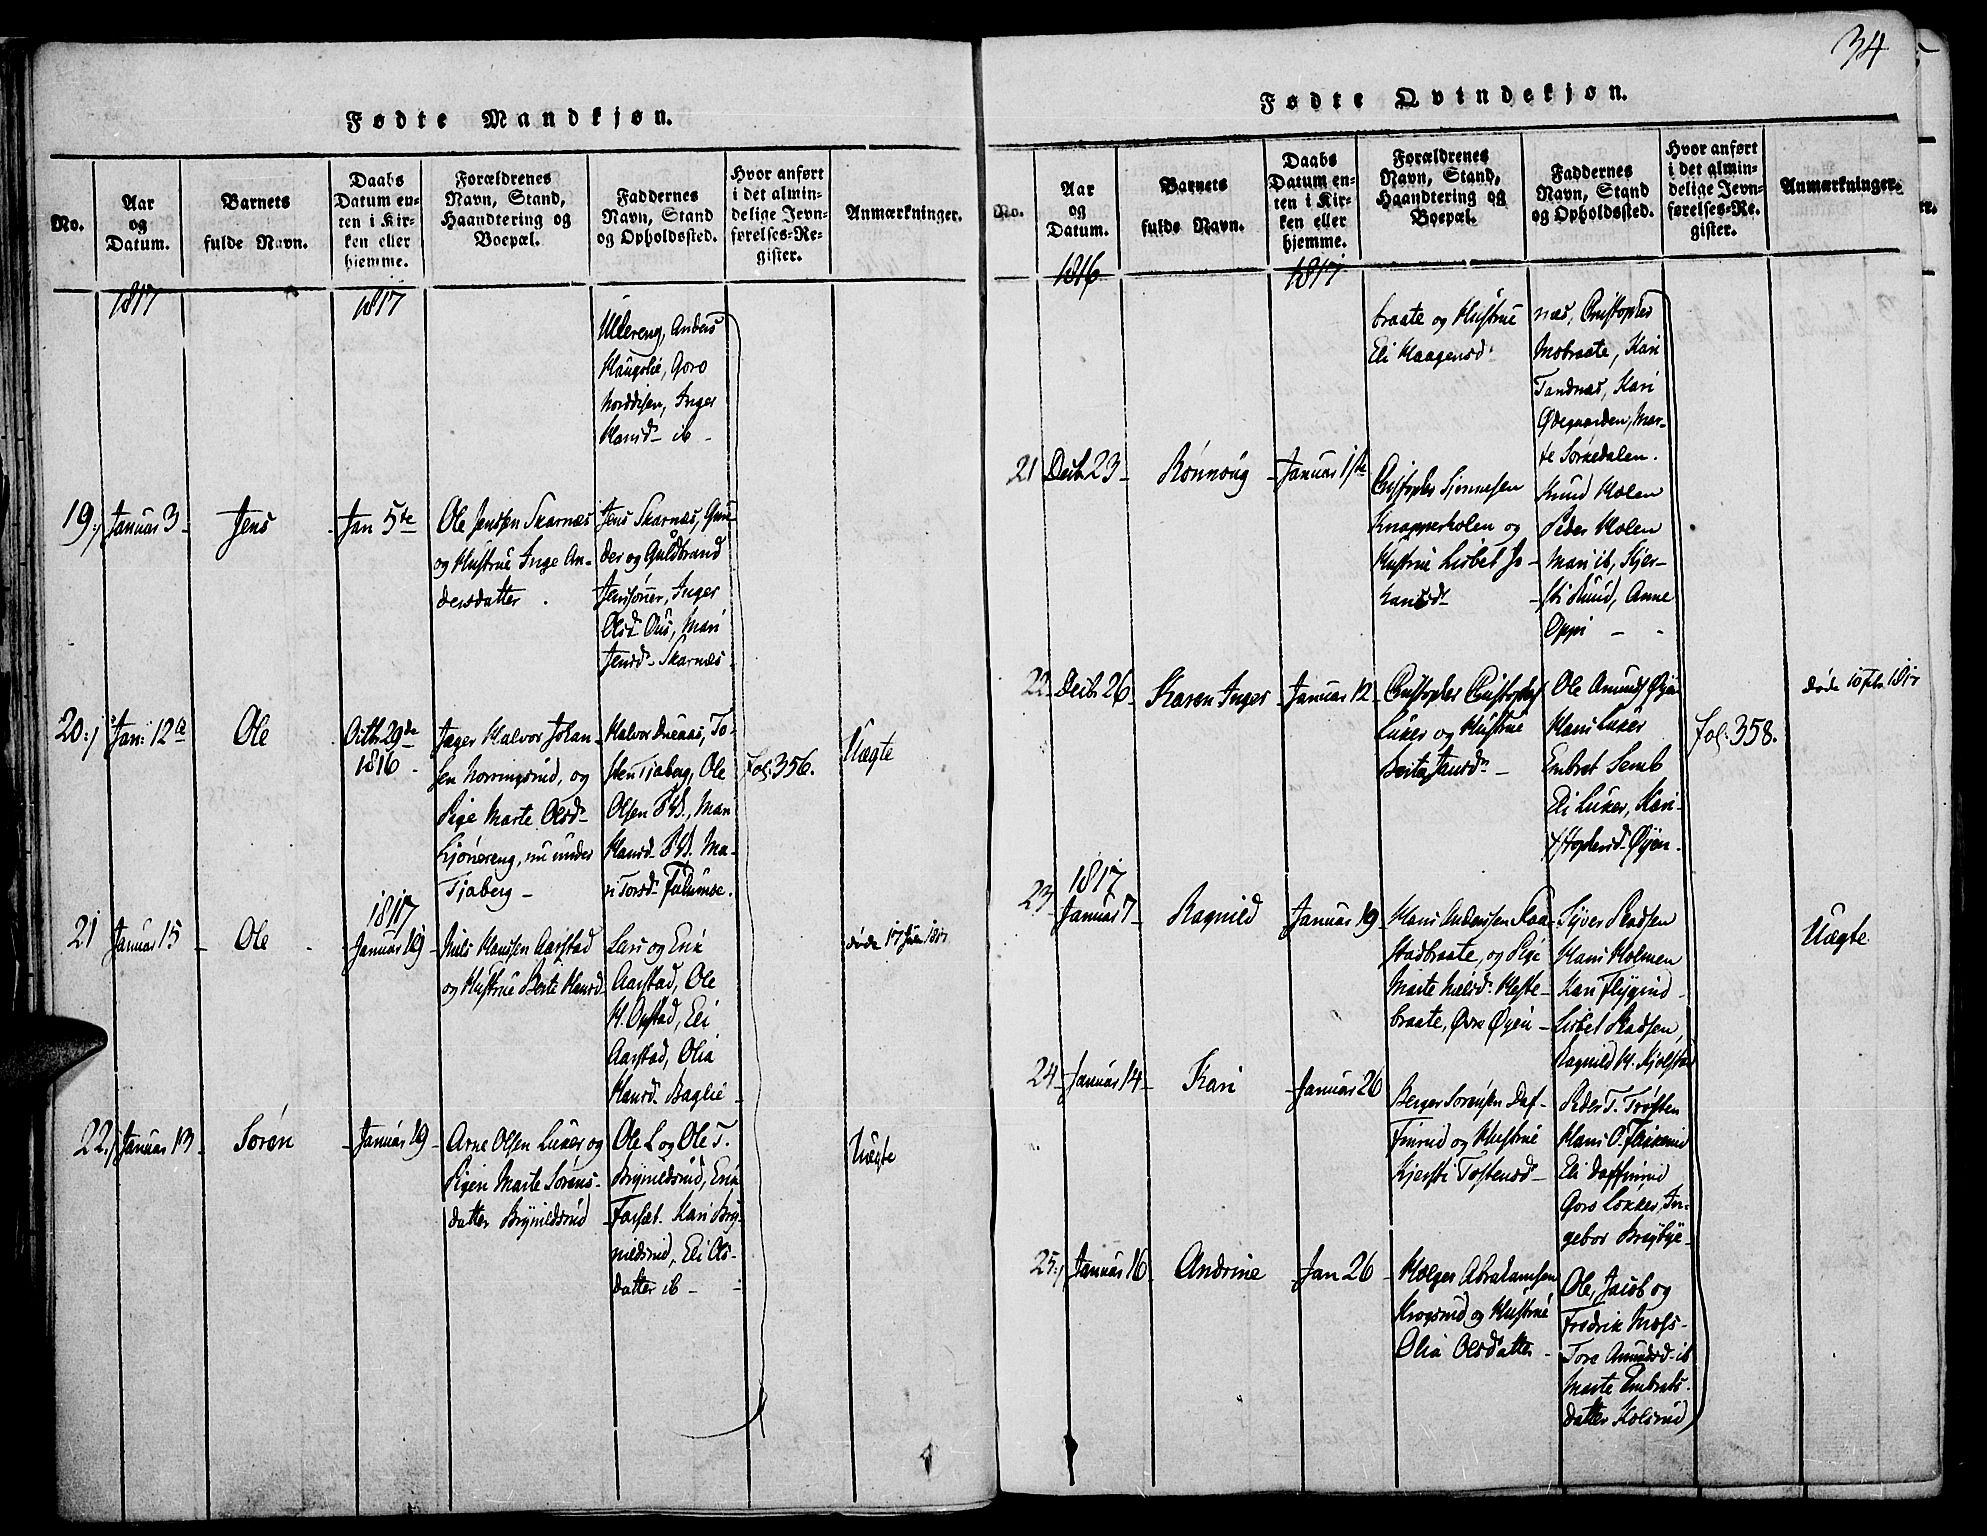 34
Fødte Mandkjøn.
No.
Aar
og
Datum.
Barnets
fulde Navn.
Daabs
Datum en-
ten i Kir-
ken eller
hjemme.
Forældrenes
Navn, Stand,
Haandtering og
Boepæl.
Faddernes
Navn, Stand
og Opholdssted.
Hvor anført
i det almin-
delige Jevn-
førelses-Re-
gister.
Anmærkninger.
1817
1817
Ullereng, Anders
Haugslie, Goro
Norddisen, Inger
Hansd- ib -
19
Januar 3
Jens
Jan 5te
Ole Jenssen Skarnæs
og Hustrue Inge An-
dersdatter
Jens Skarnæs, Gun-
der og Guldbrand
Jenssønner, Inger
Olsd Ous, Mari
Jensd- Skarnæs
20
Jan: 12te
Ole
Octbr 29de
1816
Jæger Halvor Johan-
sen Norringsrud, og
Pige Marte Olsd-
Kjønereng, nu under
Tjaberg
Halvor Sneaas, To-
sten Tjaberg, Ole
Olsen ibd., Mari
Hansd- ibd. Ma-
ri Torsd-
fol. 356.
Uægte
21
Januar 15
Ole
1817
Januar 19
Niels Hansen Aarstad
og Hustrue Berte Hansd
Lars og Erik
Aarstad, Ole
H. Opstad, Eli
Aarstad, Olia
Hansd- Baglie
døde 17 Jan 1817
22
Januar 13
Søren
Januar 19
Arne Olsen Luker og
Pigen Marte Sørens-
datter Brynildsrud
Ole L og Ole T.
Brynildsrud, Erik
Farsæt. Kari Bry-
nildsrud, Eli Ols-
datter ib -
Uægte
Fødte Qvindekjøn.
No.
Aar
og
Datum.
Barnets
fulde Navn.
Daabs
Datum en-
ten i Kir-
ken eller
hjemme.
Forældrenes
Navn, Stand,
Haandtering og
Boepæl.
Faddernes
Navn, Stand
og Opholdssted.
Hvor anført
i det almin-
delige Jevn-
førelses-Re-
gister.
Anmærkninger.
1816
1817
braate og Hustrue
Eli Haagensd
næs, Christopher
Mobraate, Kari
Tandnæs, Kari
Ødegaarden, Mar-
te Sørkedalen.
21
Decbr 23
Rønnoug
Januar 1ste
Christopher Simensen
Knapperholen og
Hustrue Lisbet Jo-
hansd
Knud Holen
Peder Holen
Mari ib, Kjer-
sti Rund, Anne
Oppi
22
Decbr 26
Karen Inger
Januar 12
Christopher Christophs
Luker og Hustrue
Berta Jansd
Ole Amunds Øyen
Hans Luker
Embret Semb
Eli Luker, Kari
Øyen
fol. 358.
døde 10 Feb. 1817
23
1817
Januar 7
Ragnild
Januar 19
Hans Anderssen Raa-
stadbraate, og Pige
Marte Nielsd. Heste-
braate, Øvre Øyen
Syver Kladsen
Hans Holmen
Kari Flygind
Lisbet Kladsen
Ragnild H. Kjølstad
Uægte
24
Januar 14
Kari
Januar 26
Berger Sørensen Daf-
finrud og Hustrue
Kjersti Tostensd
Peder T. Trøften
Hans O.
Eli Daffinrud
Goro Løkker, In-
gebor Brøbye
25
Januar 16
Andrine
Jan 26
Holger Abrahamsen
Krogsrud og Hustrue
Olia Olsdatter
Ole, Jacob og
Fredrik Moss
Tore Amundsd- ib
Marte Embrets-
datter Holsrud